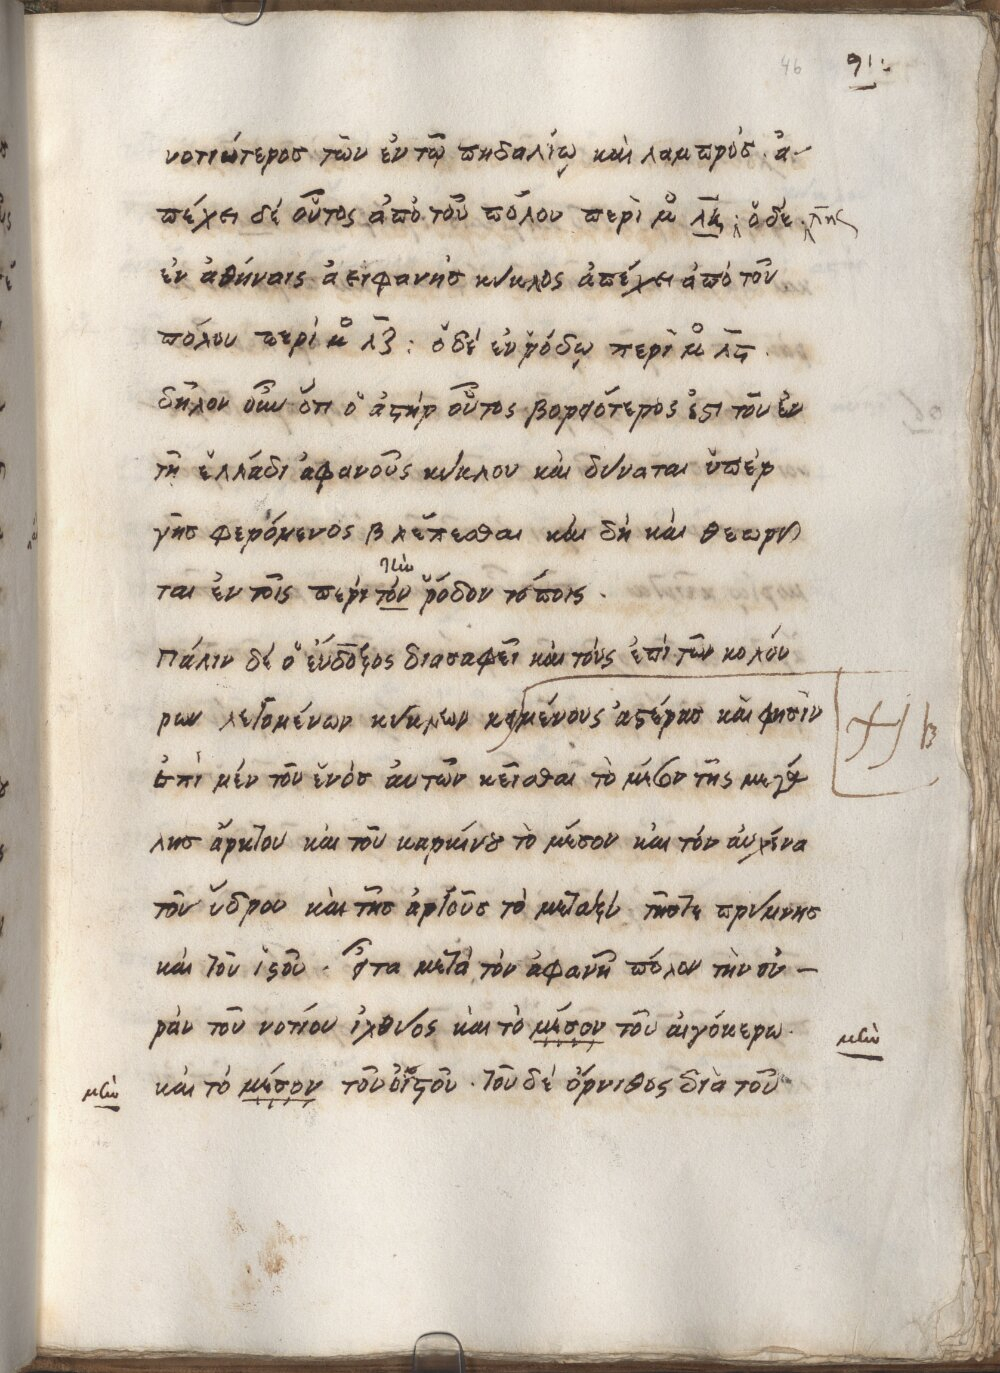 46 91
νοτιώτεροσ τῶν ἐν τῶ πηδαλίω καὶ λαμπρόσ. ἀ-
πέχει δέ οὗτος ἀπὸ τοῦ πόλου περὶ μο λη : ὁ δέ της
ἐν ἀθήναις ἀειφανὴσ κύκλος ἀπέχει ἀπό τοῦ
πόλου περὶ μο λζ : ὁ δέ ἐν ῥόδω περὶ μο λς .
δῆλον οὖν ὅτι ὁ ἀστήρ οὗτος βορειότερος ἐστι τοῦ ἐν
τῆ ἑλλάδι ἀφανοῦς κύκλου καὶ δύναται ὑπέρ
γῆσ φερόμενος βλέπεσθαι καὶ δή καὶ θεωρεῖ
την
ται ἐν τοῖς περὶ τόν ῥόδον τόποις .
Πάλιν δέ ὁ εὔδοξος διασαφεῖ καὶ τούς ἐπί τῶν κολού
ρων λεγομένων κύκλων κειμένους ἀστέρασ καὶ φησὶν
β
ἐπὶ μέν τοῦ ἑνόσ αὐτῶν κεῖσθαι τὸ μέσον τῆς μεγά
λησ ἄρκτου καὶ τοῦ καρκίνου τὸ μέσον καὶ τόν αὐχένα
τοῦ ὕδρου καὶ τῆσ ἀργοῦσ τὸ μεταξὺ τῆστε πρύμνησ
καὶ τοῦ ἱστοῦ . εἶτα μετὰ τόν ἀφανῆ πόλον τὴν οὐ-
ράν τοῦ νοτίου ἰχθύος καὶ τὸ μέσον τοῦ αἰγόκερω .
καὶ τό μέσον τοῦ ὀϊστοῦ . τοῦ δέ ὄρνιθος διὰ τοῦ